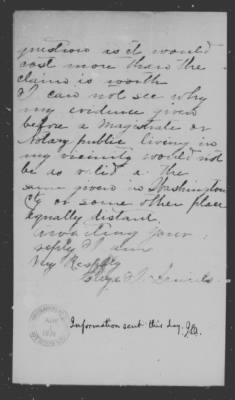 question as it would
cost more than the
claim is worth
I can not see why
my evidence given
before a Magistrate or
Notary public living in
my vicinity would not
be as valid as the
same given in Washington
City or some other place
equally distant.
awaiting your
reply I am
Very Respfly
Information sent this day.